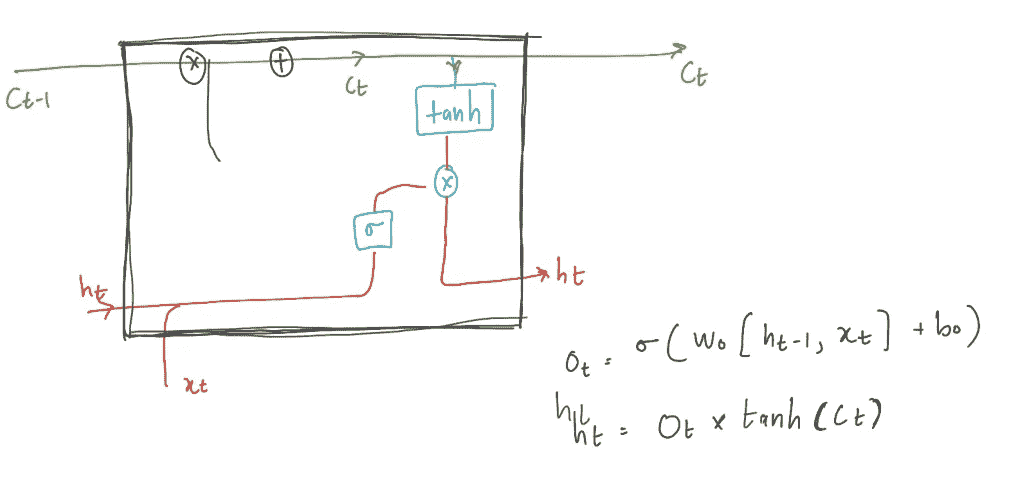 x + Ct Ct
Ct-1
tanh
x
σ
ht ht
xt
Ot = σ(Wo [ht-1, xt] + bo)
ht
ht = Ot x tanh(Ct)